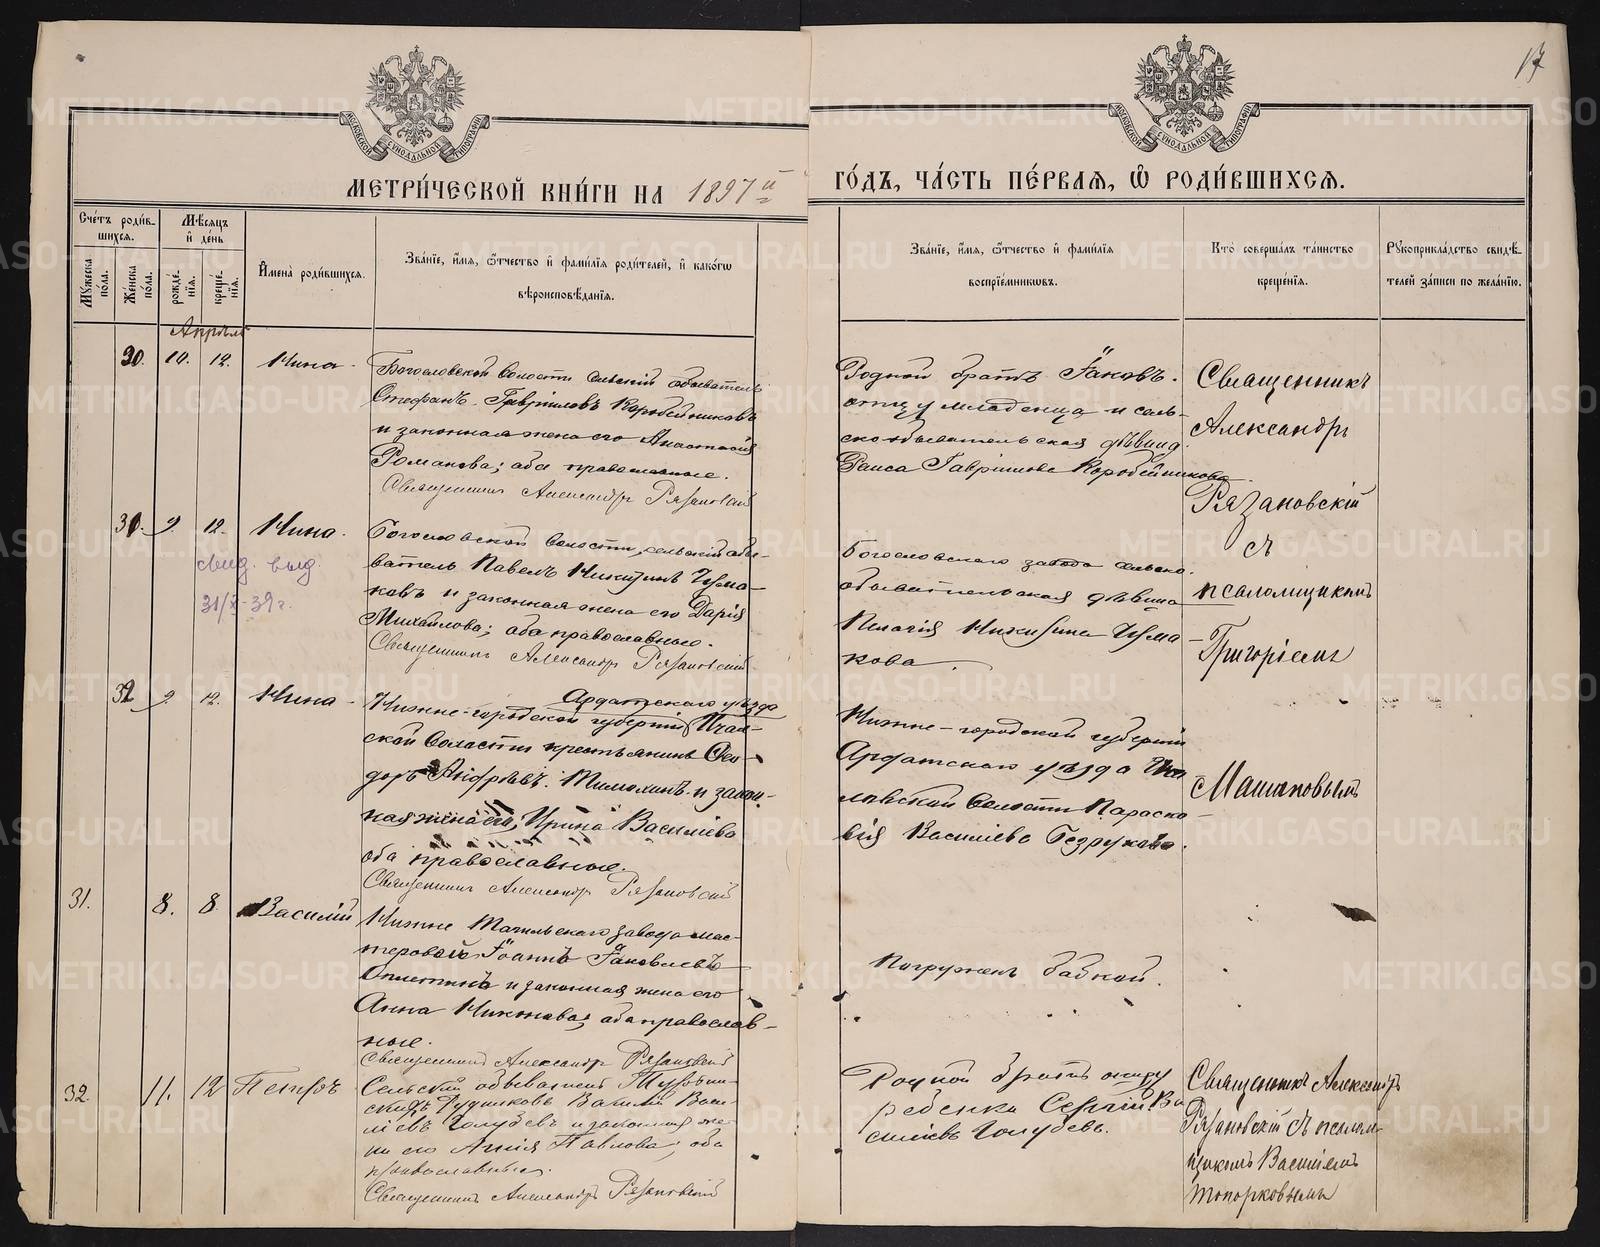 17
МОСКОВСКОЙ СѴНОДАЛЬНОЙ ТИПОГРАФІИ
МОСКОВСКОЙ СѴНОДАЛЬНОЙ ТИПОГРАФІИ
МЕТРИ́ЧЕСКОЙ КНИ́ГИ НА 1897 й
ГО́ДЪ, ЧА́СТЬ ПЕ́РВАЯ, Ѡ РОДИ́ВШИХСЯ.
Счетъ родив-
шихся.
Мужеска пола.
Женска пола.
Мѣсяцъ и день
рожденія.
крещенія.
Имена родившихся.
Званіе, имя, отчество и фамилія родителей, и какогω
вѣроисповѣданія.
Званіе, имя, отчество и фамилія
воспріемниковъ.
Кто совершалъ таинство
крещенія.
Рукоприкладство свидѣ-
телей записи по желанію.
Апрѣль
30. 10. 12. Нина.
Богословской Волости сельскій обыватель
Стефанъ Гавріиловъ Коробейниковъ
и законная жена его Анастасія
Романова; оба православные.
Священникъ Александръ Рязановскій
Родной братъ Іаковъ.
отцу младенца и сель-
скообывательская дѣвица
Раиса Гавріилова Коробейникова.
Священникъ
Александръ
Рязановскій
съ
псаломщикомъ
Григоріемъ
Машановымъ
31. 9. 12. Нина.
свид. выд.
31/X-39 г.
Богословской Волости, сельскій обы-
ватель Павелъ Никитинъ Чума-
ковъ и законная жена его Дарія
Михайлова; оба православные.
Священникъ Александръ Рязановскій
Богословскаго завода сельско-
обывательская дѣвица
Пелагія Никитина Чума-
кова.
32 9 12. Нина
Ардатскаго уѣзда
Нижне-городской губерніи
ской Волости крестьянинъ Ѳео-
доръ Андреевъ Тимохинъ и закон-
ная жена его Ирина Василіева
оба православные.
Священникъ Александръ Рязановскій
Нижне-городской губерніи
Ардатскаго уѣзда
Волости Параске-
вія Василіева Безрукова.
31. 8. 8. Василій
Нижне Тагильскаго завода мас-
теровой Іоаннъ Іаковлевъ
и законная жена его
Анна оба православ-
ные.
Священникъ Александръ Рязановскій
Погруженъ бабкой.
32. 11. 12 Петръ
Сельскій обыватель Турьин-
скихъ Рудниковъ Василій Васи-
ліевъ Голубевъ и законная же-
на его Павлова; оба
православные.
Священникъ Александръ Рязановскій
Родной братъ отцу
ребенка Сергій Ва
силіевъ Голубевъ.
Священникъ Александръ
Рязановскій съ псалом-
щикомъ Василіемъ
Топорковымъ